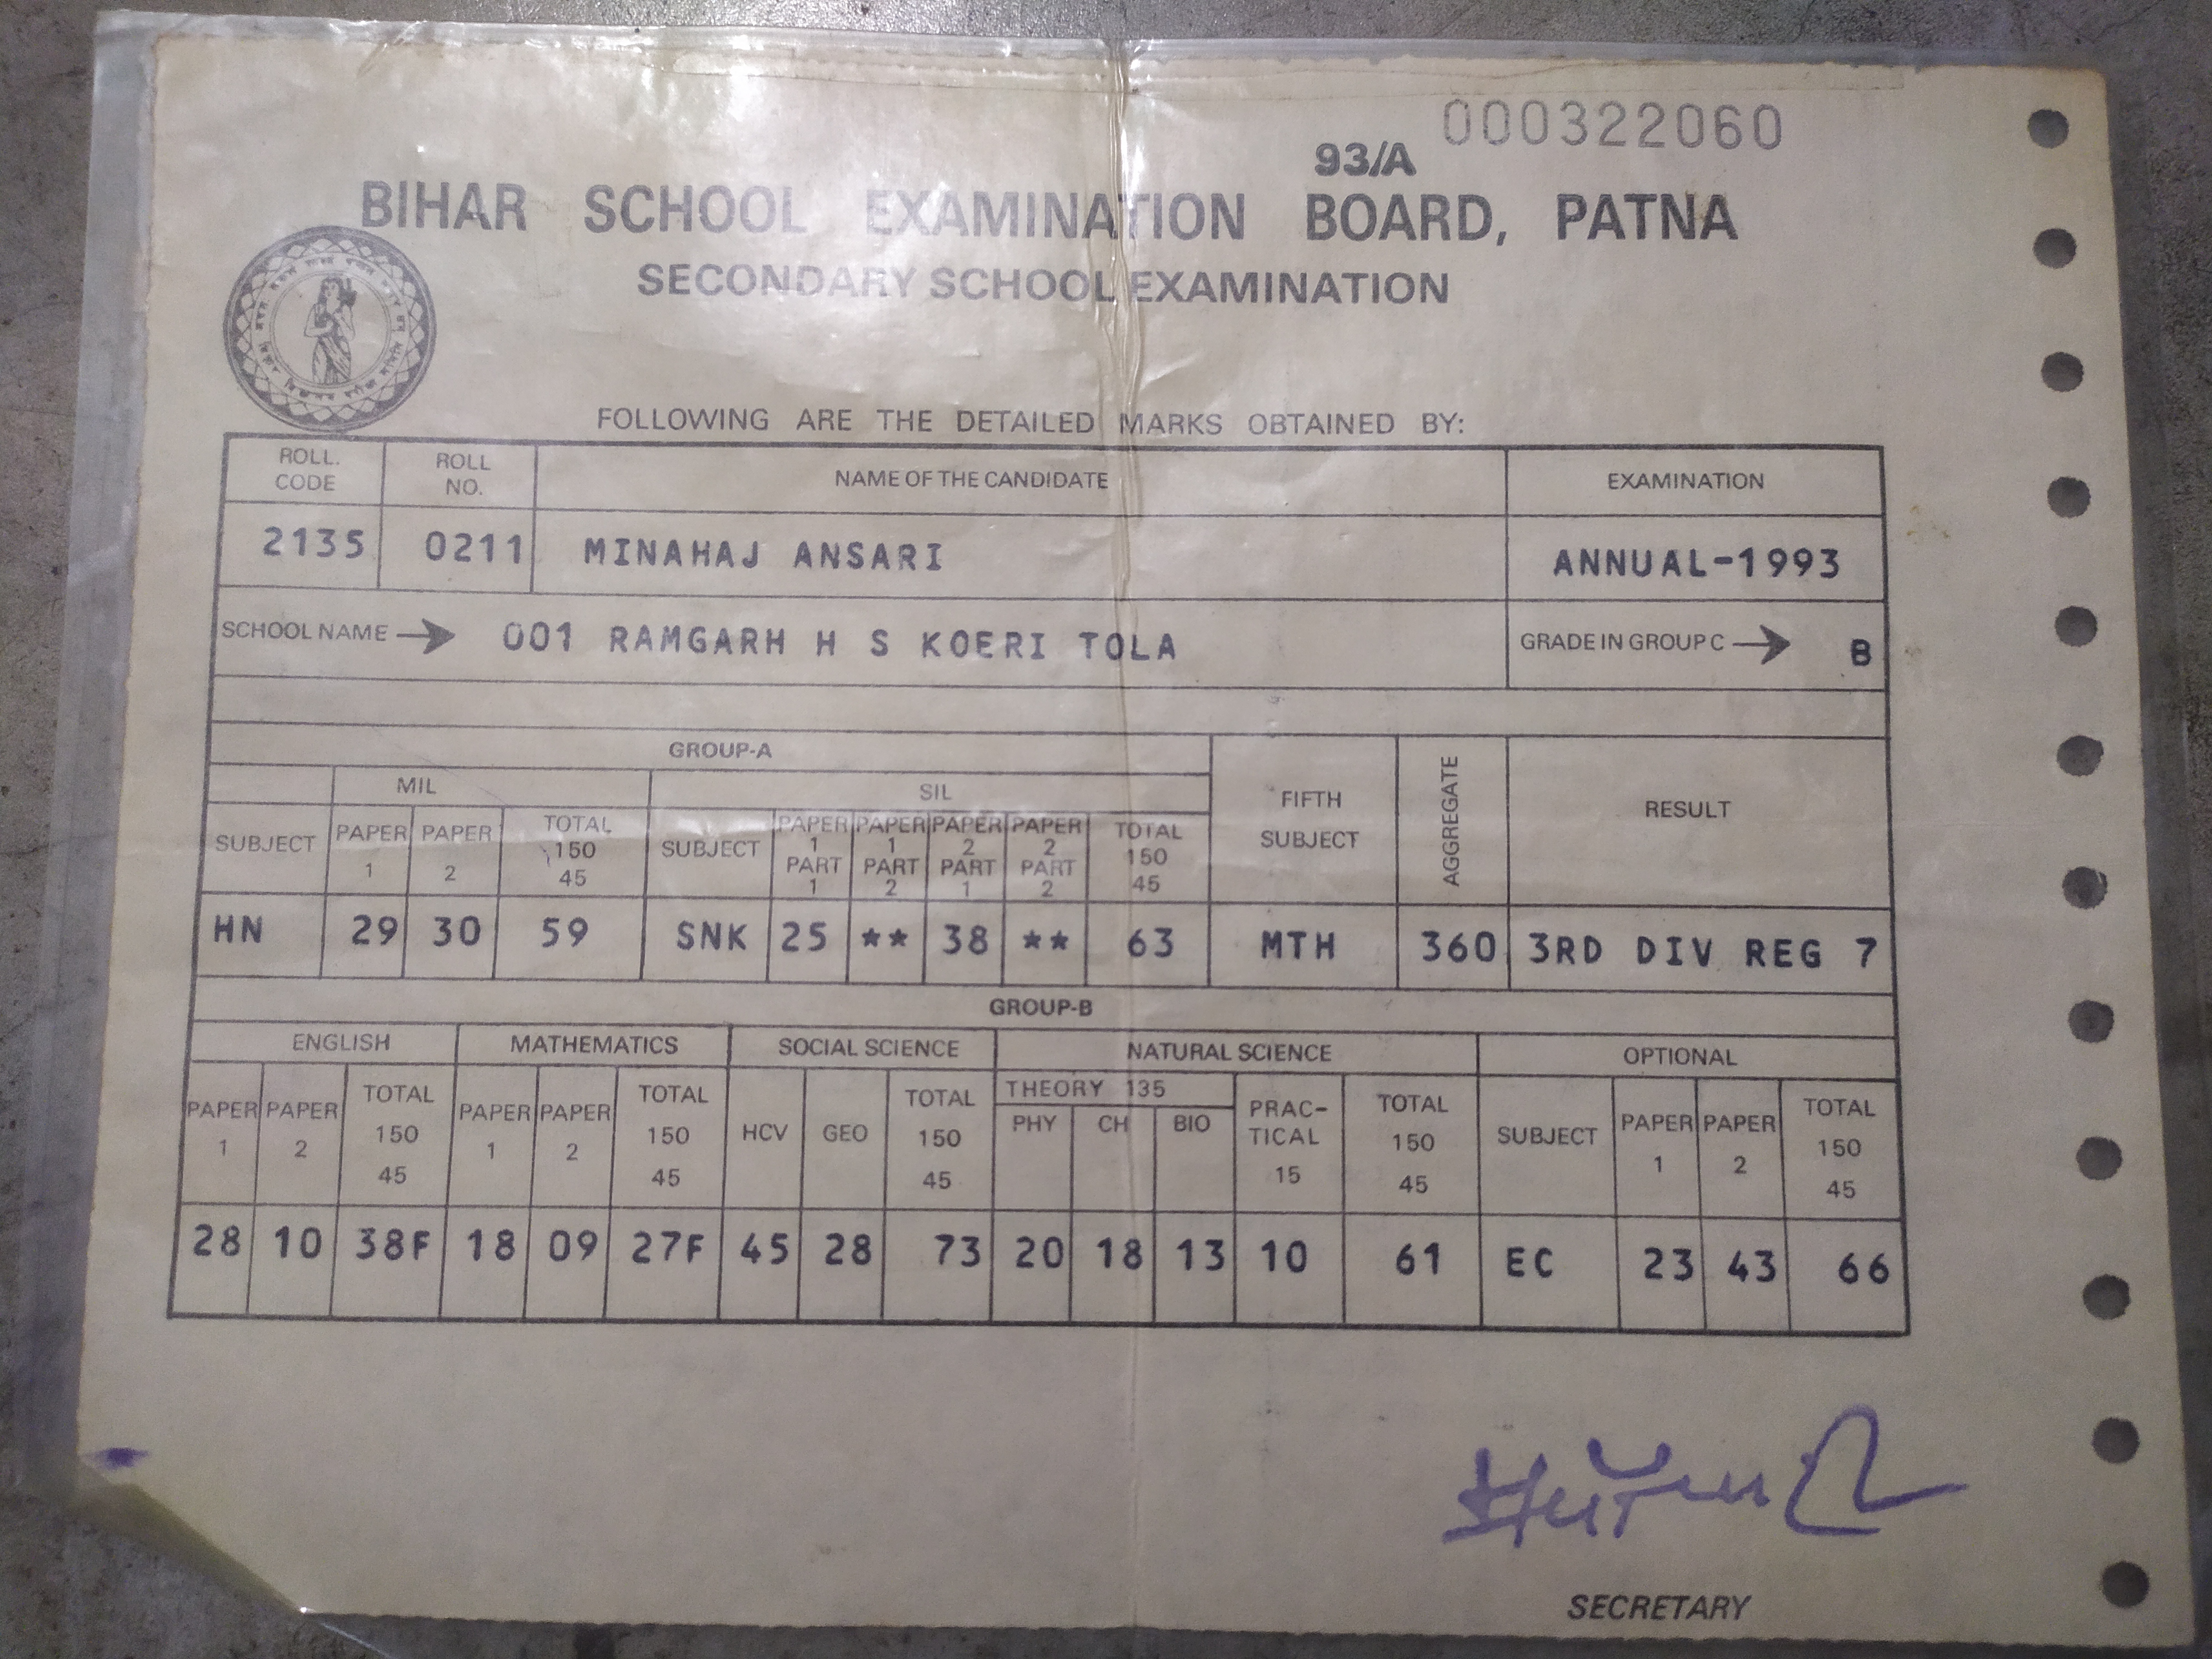 000322060
93/A
BIHAR SCHOOL EXAMINATION BOARD, PATNA
SECONDARY SCHOOL EXAMINATION
FOLLOWING ARE THE DETAILED MARKS OBTAINED BY:
ROLL. CODE ROLL NO. NAME OF THE CANDIDATE EXAMINATION
2135 0211 MINAHAJ ANSARI ANNUAL-1993
SCHOOL NAME → 001 RAMGARH H S KOERI TOLA GRADE IN GROUP C → B
GROUP-A
MIL SIL FIFTH SUBJECT AGGREGATE RESULT
SUBJECT PAPER 1 PAPER 2 TOTAL 150 45 SUBJECT PAPER 1 PART 1 PAPER 1 PART 2 PAPER 2 PART 1 PAPER 2 PART 2 TOTAL 150 45
HN 29 30 59 SNK 25 ** 38 ** 63 MTH 360 3RD DIV REG 7
GROUP-B
ENGLISH MATHEMATICS SOCIAL SCIENCE NATURAL SCIENCE OPTIONAL
PAPER 1 PAPER 2 TOTAL 150 45 PAPER 1 PAPER 2 TOTAL 150 45 HCV GEO TOTAL 150 45 THEORY 135 PHY CH BIO PRAC-TICAL 15 TOTAL 150 45 SUBJECT PAPER 1 PAPER 2 TOTAL 150 45
28 10 38F 18 09 27F 45 28 73 20 18 13 10 61 EC 23 43 66
SECRETARY